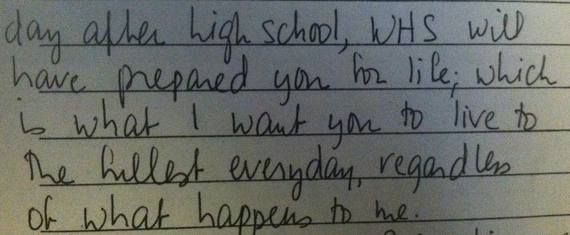 day after high school, WHS will
have prepared you for life; which
is what I want you to live to
the fullest everyday, regardless
of what happens to me.